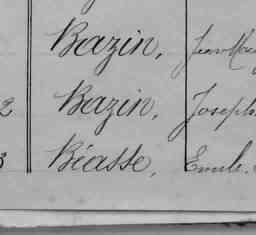 Bazin,
2 Bazin, Joseph
3 Béasse, Emile.